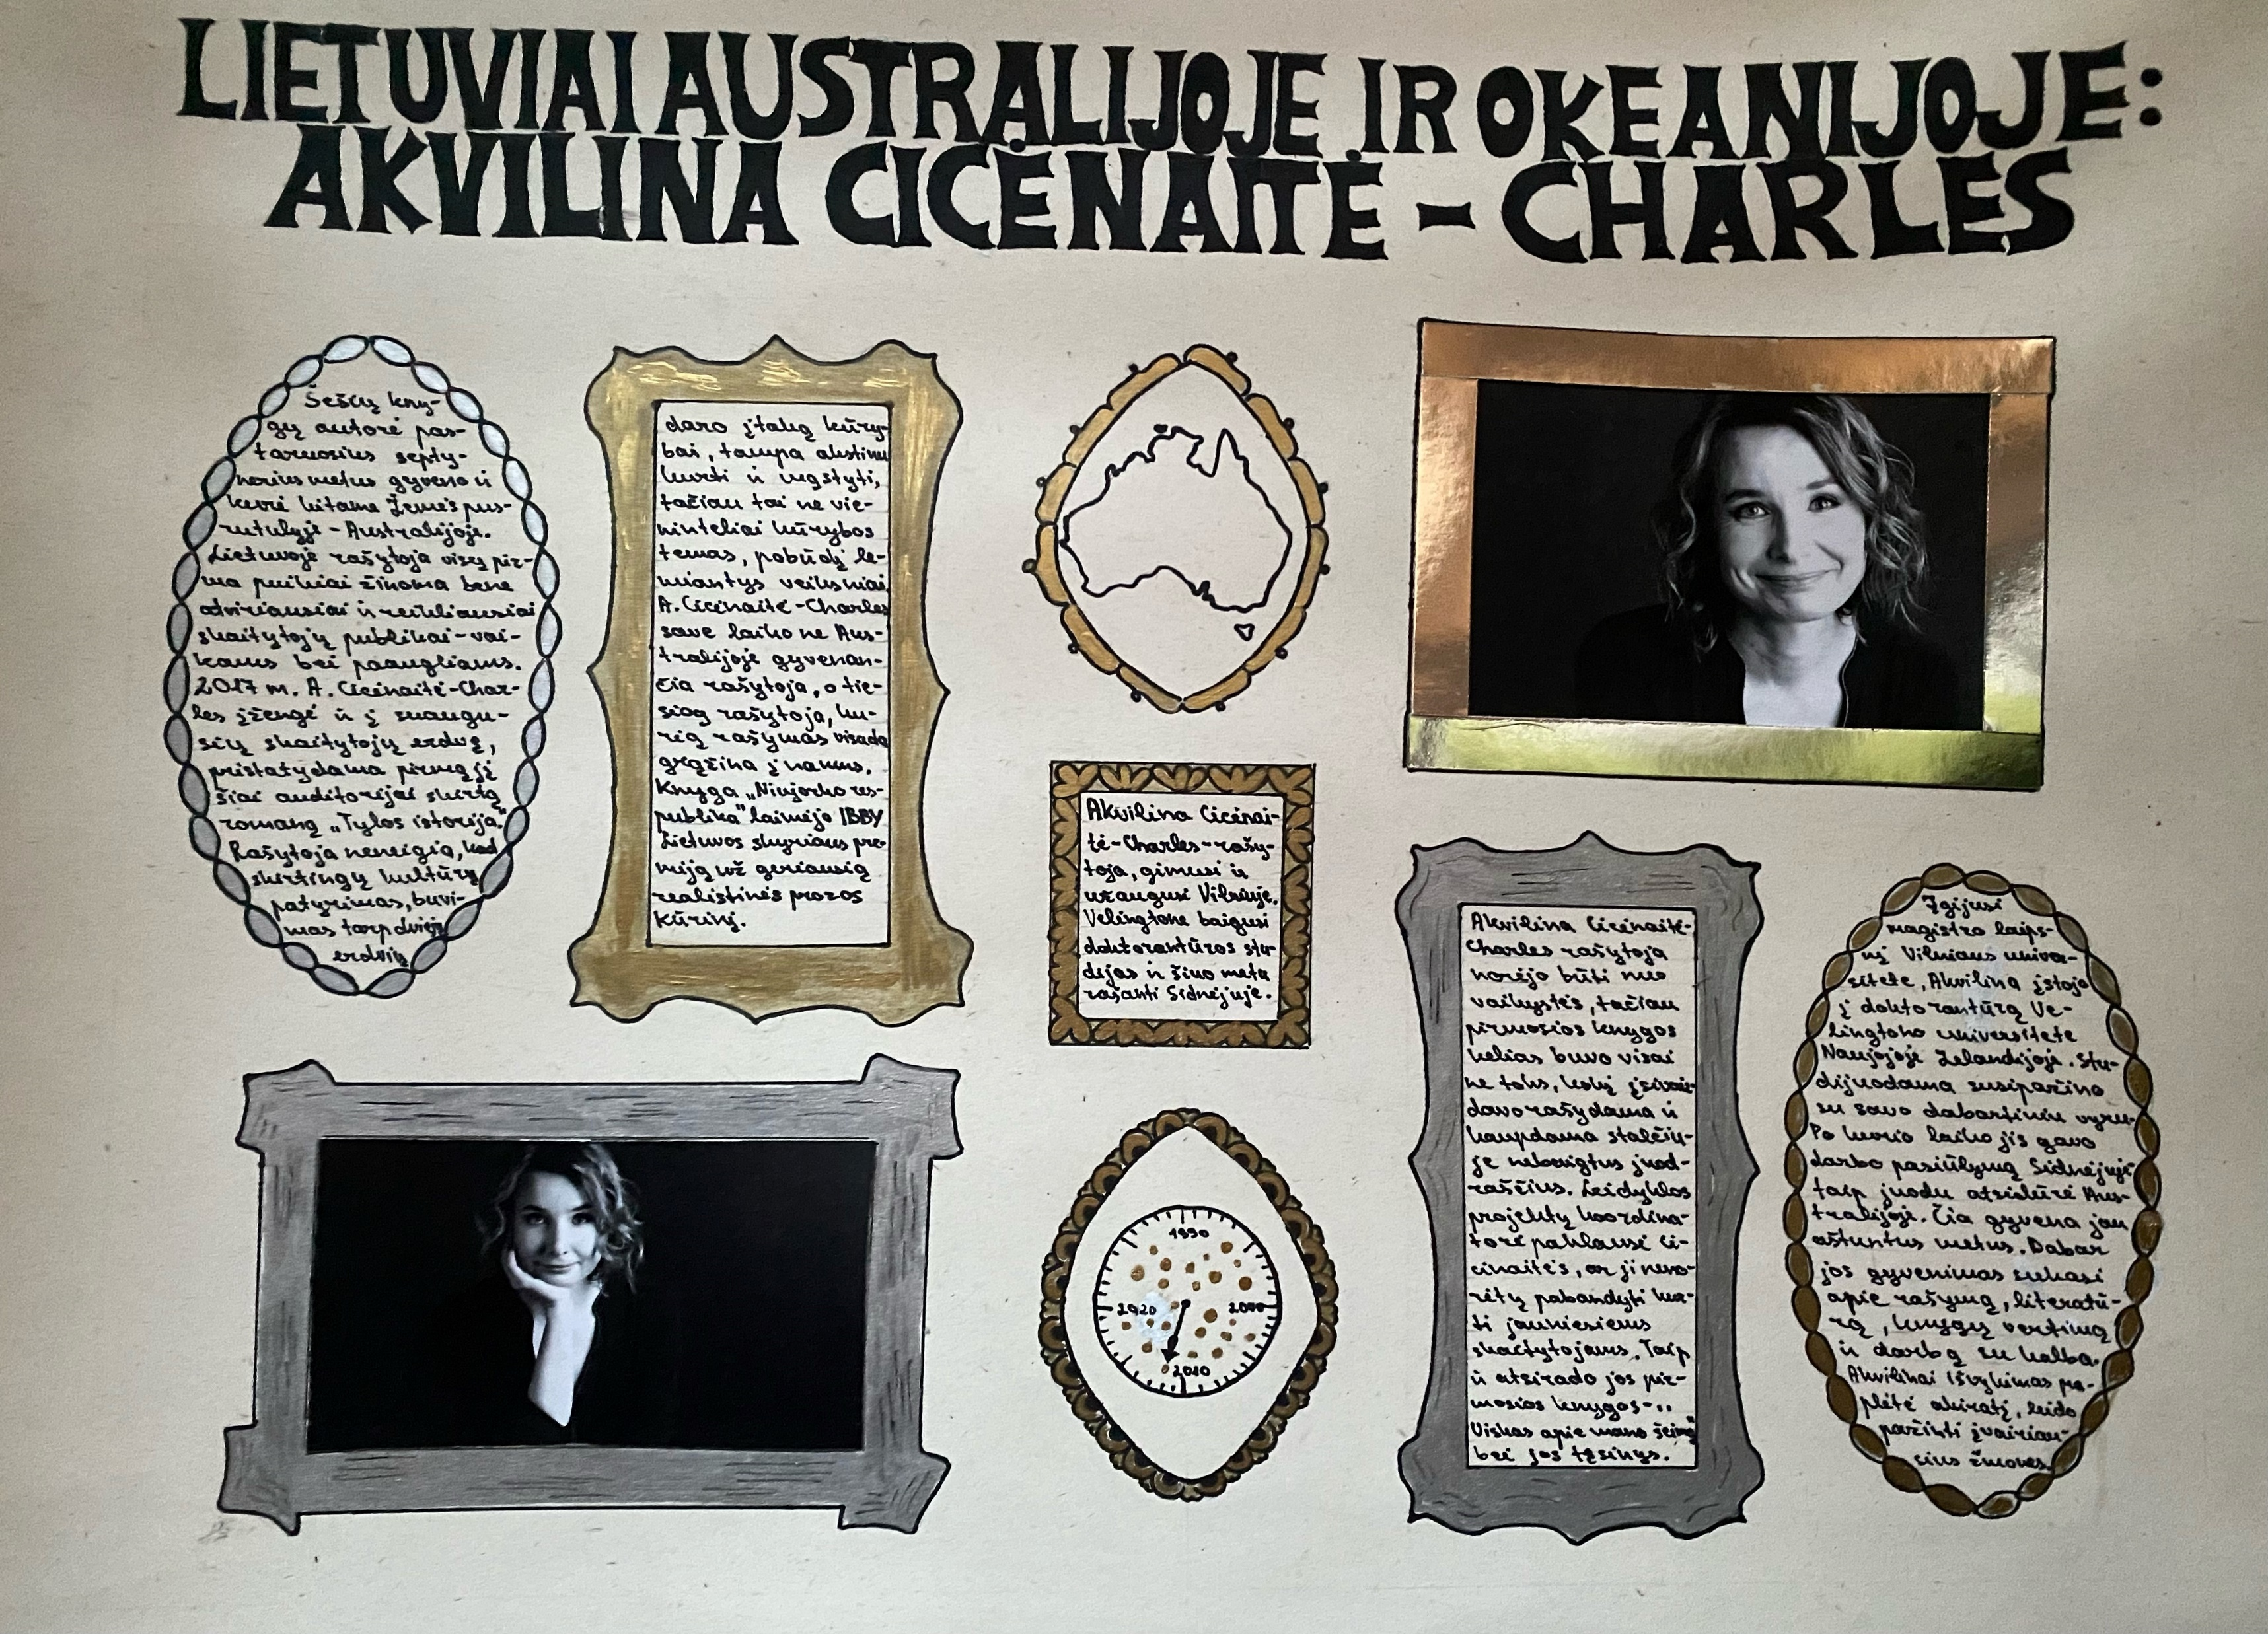 LIETUVIAI AUSTRALIJOJE IR OKEANIJOJE:
AKVILINA CICĖNAITĖ - CHARLES
Šešių kny-
gų autorė pas-
taruosius septy-
nerius metus gyveno ir
kūrė kitame Žemės pus-
rutulyje - Australijoje.
Lietuvoje rašytoja visų pir-
ma puikiai žinoma bene
atviriausiai ir reikliausiai
skaitytojų publikai - vai-
kams bei paaugliams.
2017 m. A. Cicėnaitė-Char-
les įžengė ir į suaugu-
sių skaitytojų erdvę,
pristatydama pirmąjį
šiai auditorijai skirtą
romaną „Tylos istorija."
Rašytoja neneigia, kad
skirtingų kultūrų
patyrimas, buvi-
mas tarp dviejų
erdvių
daro įtaką kūry-
bai, tampa akstinu
kurti ir mąstyti,
tačiau tai ne vie-
ninteliai kūrybos
temas, pobūdį le-
miantys veiksniai
A. Cicėnaitė-Charles
save laiko ne Aus-
tralijoje gyvenan-
čia rašytoja, o tie-
siog rašytoja, ku-
rią rašymas visada
grąžina į namus.
Knyga „Niujorko res-
publika" laimėjo IBBY
Lietuvos skyriaus pre-
miją už geriausią
realistinės prozos
kūrinį.
Akvilina Cicėnai-
tė-Charles-rašy-
toja, gimusi ir
užaugusi Vilniuje.
Velingtone baigusi
doktorantūros stu-
dijas ir šiuo metu
rašanti Sidnėjuje.
1990
2000
2010
2020
Akvilina Cicėnaitė-
Charles rašytoja
norėjo būti nuo
vaikystės, tačiau
pirmosios knygos
kelias buvo visai
ne toks, kokį įsivaiz-
davo rašydama ir
kaupdama stalčiu-
je nebaigtus juod-
raščius. Leidyklos
projektų koordina-
torė paklausė Ci-
cėnaitės, ar ji neno-
rėtų pabandyti kur-
ti jauniesiems
skaitytojams. Taip
ir atsirado jos pir-
mosios knygos - „
Viskas apie mano šeimą"
bei jos tęsinys.
Įgijusi
magistro laips-
nį Vilniaus univer-
sitete, Akvilina įstojo
į doktorantūrą Ve-
lingtono universitete
Naujojoje Zelandijoje. Stu-
dijuodama susipažino
su savo dabartiniu vyru.
Po kurio laiko jis gavo
darbo pasiūlymą Sidnėjuje
taip juodu atsidūrė Aus-
tralijoje. Čia gyvena jau
aštuntus metus. Dabar
jos gyvenimas sukasi
apie rašymą, literatū-
rą, knygų vertimą
ir darbą su kalba.
Akvilinai išvykimas pra-
plėtė akiratį, leido
pažinti įvairiau-
sius žmones.